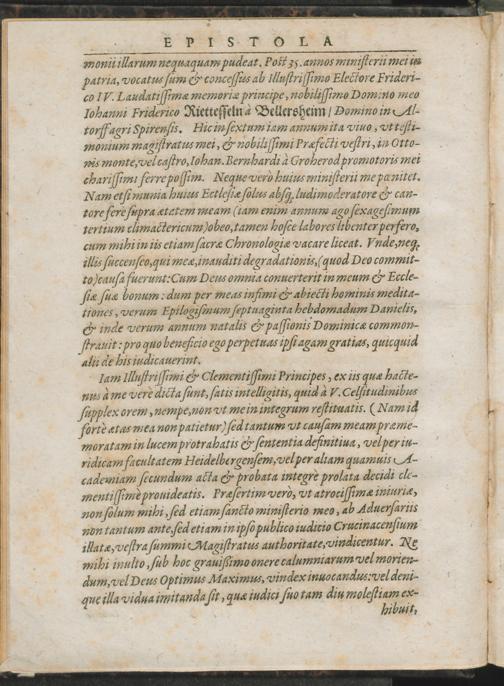 EPISTOLA
monii illarum nequaquam pudeat. Post 35. annos ministerii mei in
patria, vocatus sum & concessus ab Illustrissimo Electore Frideri-
co IV. Laudatissimæ memoriæ principe, nobilissimo Domino meo
Iohanni Friderico Riettesseln à Bellersheim / Domino in Al-
torff agri Spirensis. Hic in sextum iam annum ita vivo, vt testi-
monium magistratus mei, & nobilissimi Præfecti vestri, in Otto-
nis monte, vel castro, Iohan. Bernhardi à Groherod promotoris mei
charissimi ferre possim. Neque verò huius ministerii me pœnitet.
Nam etsi munia huius Ecclesiæ solus absq; ludimoderatore & can-
tore ferè supra ætatem meam (iam enim annum ago sexagesimum
tertium climactericum) obeo, tamen hosce labores libenter perfero,
cum mihi in iis etiam sacræ Chronologiæ vacare liceat. Vnde, neq;
illis succenseo, qui meæ, inauditi degradationis, (quod Deo commit-
to) causa fuerunt: Cum Deus omnia converterit in meum & Eccle-
siæ suæ bonum: dum per meas infimi & abiecti hominis medita-
tiones, verum Epilogismum septuaginta hebdomadum Danielis,
& inde verum annum natalis & passionis Dominicæ common-
stravit: pro quo beneficio ego perpetuas ipsi agam gratias, quicquid
alii de his iudicaverint.
Iam Illustrissimi & Clementissimi Principes, ex iis quæ hacte-
nus à me verè dicta sunt, satis intelligitis, quid à V. Celsitudinibus
supplex orem, nempe, non vt me in integrum restituatis. (Nam id
fortè ætas mea non patietur) sed tantum vt causam meam præme-
moratam in lucem protrahatis & sententia definitiva, vel per iu-
ridicam facultatem Heidelbergensem, vel per aliam quamuis A-
cademiam secundum acta & probata integrè prolata decidi cle-
mentissimè provideatis. Præsertim verò, vt atrocissimæ iniuriæ,
non solum mihi, sed etiam sancto ministerio meo, ab Adversariis
non tantum ante, sed etiam in ipso publico iudicio Crucinacensium
illatæ, vestra summi Magistratus authoritate, vindicentur. Ne
mihi inulto, sub hoc gravissimo onere calumniarum vel morien-
dum, vel Deus Optimus Maximus, vindex invocandus: vel deni-
que illa vidua imitanda sit, quæ iudici suo tam diu molestiam ex-
hibuit,